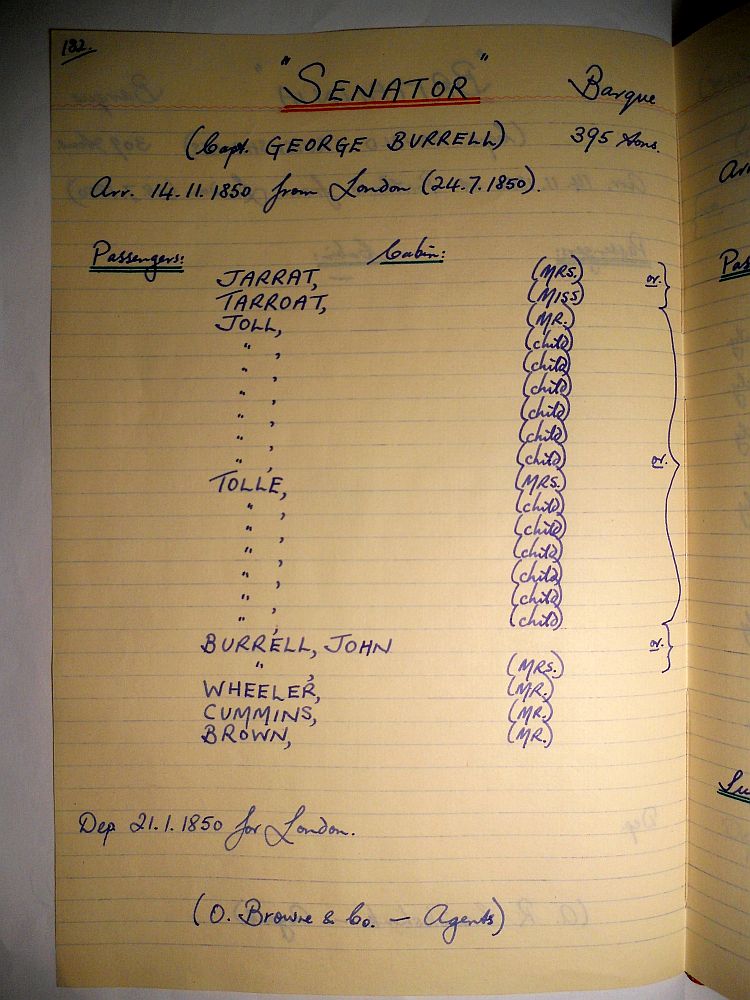 182.
"SENATOR" Barque
(Capt. GEORGE BURRELL) 395 tons.
Arr. 14.11.1850 from London (24.7.1850).
Passengers: Cabin:
JARRAT, (MRS.) or.
TARROAT, (MISS)
JOLL, (MR.)
" , (child)
" , (child)
" , (child)
" , (child)
" , (child)
" , (child) or.
TOLLE, (MRS.)
" , (child)
" , (child)
" , (child)
" , (child)
" , (child)
" , (child)
BURRELL, JOHN or.
" , (MRS.)
WHEELER, (MR.)
CUMMINS, (MR.)
BROWN, (MR.)
Dep 21.1.1850 for London.
(O. Browne & Co. — Agents)